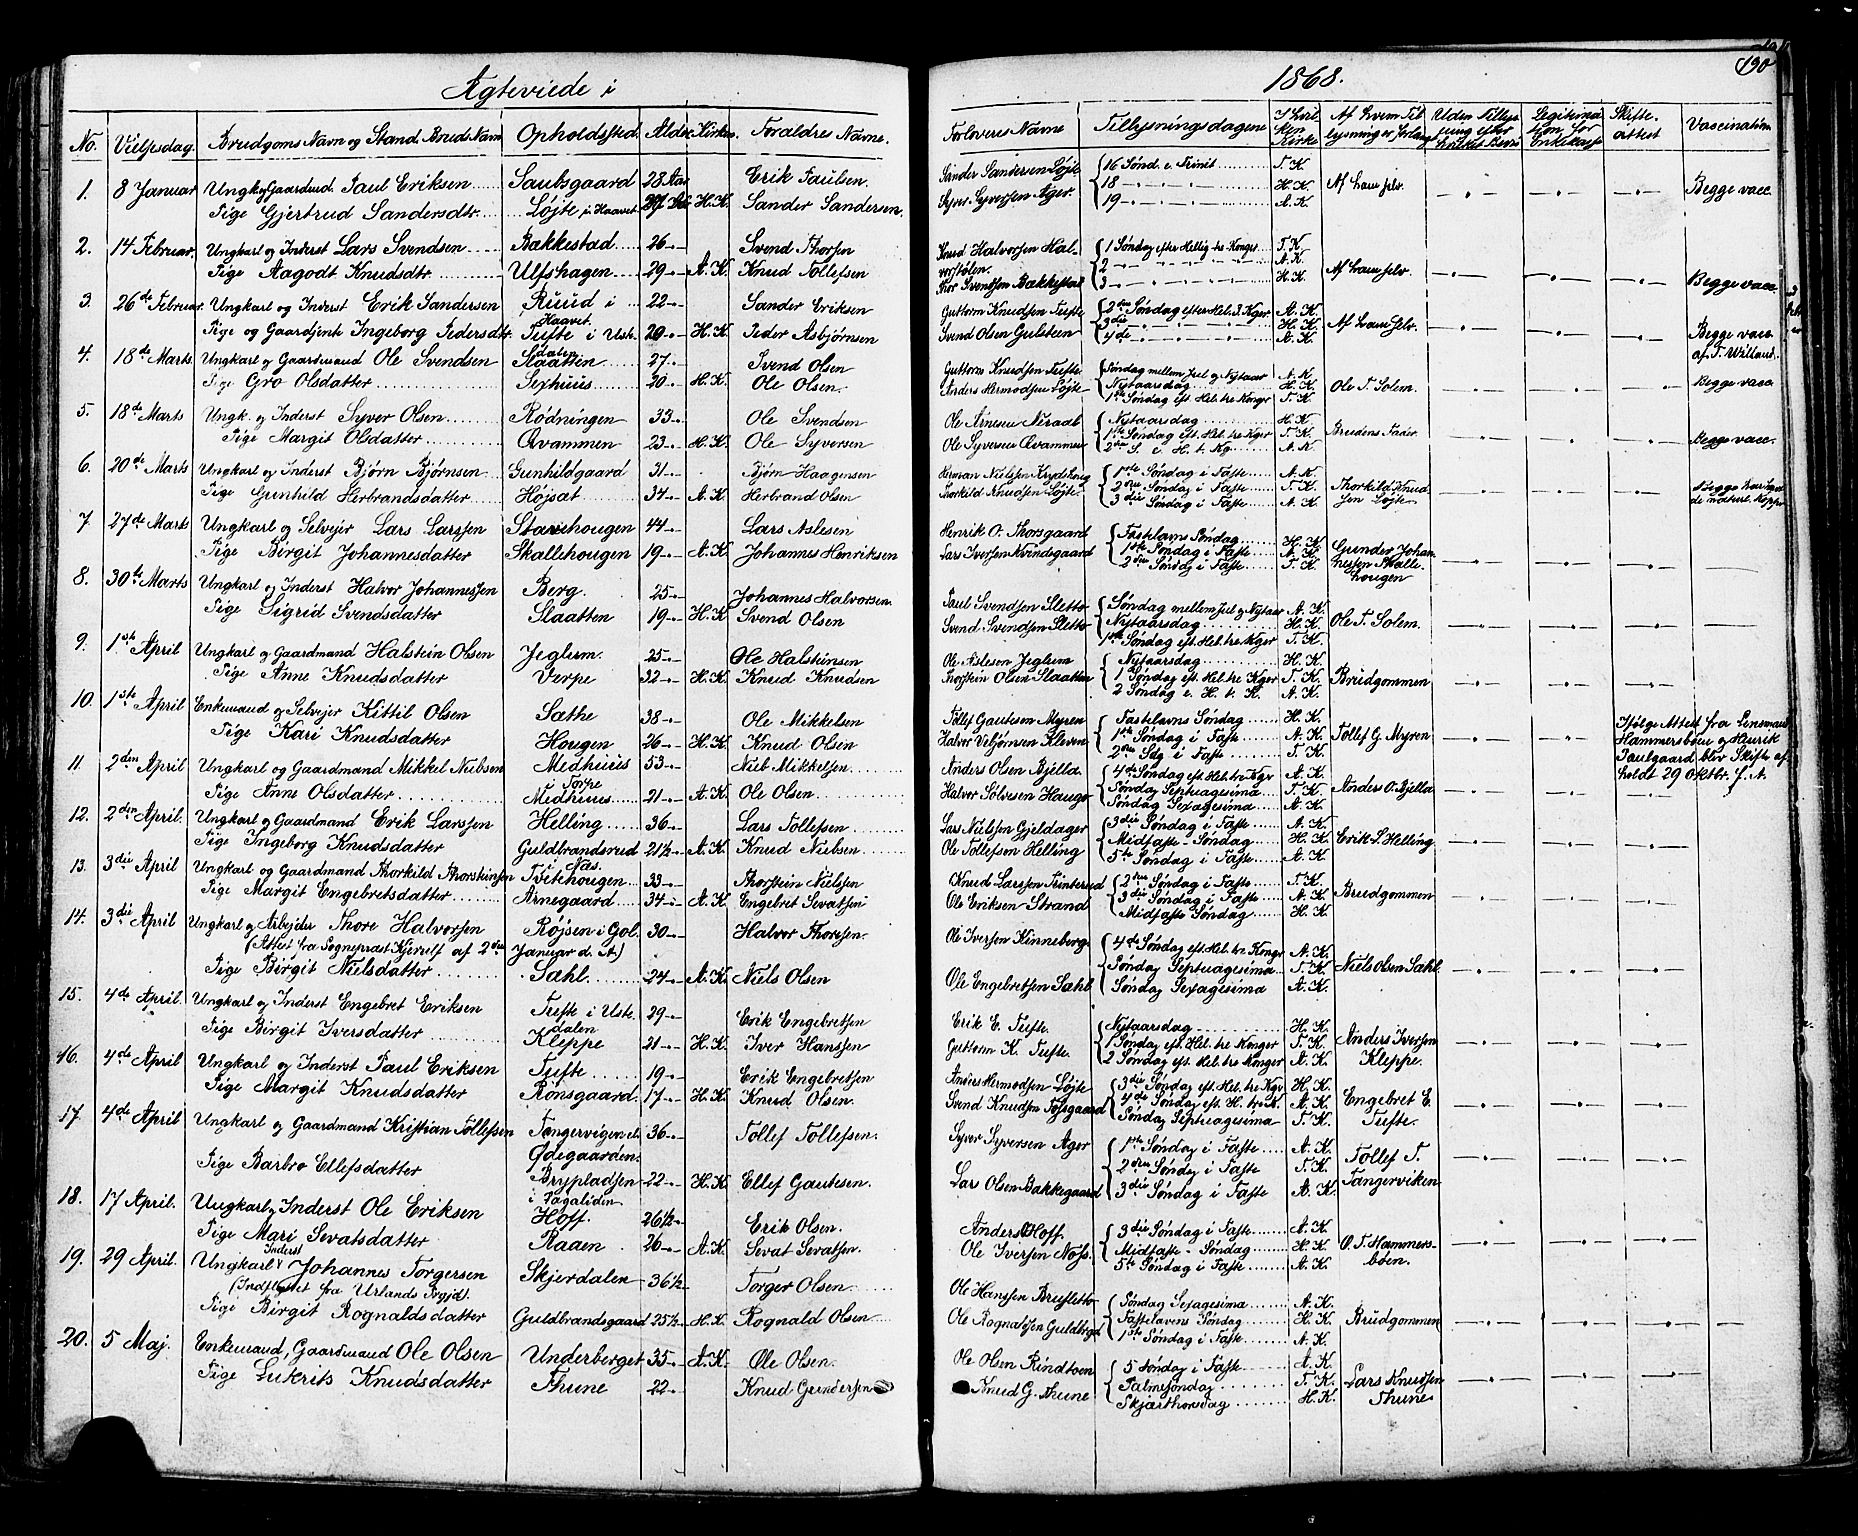 Ægteviede i
No. Vielsesdag. Brudgoms Navn og Stand. Bruds Navn Opholdssted Alder Kirke Forældres Navne.
1. 8 Januar Ungk. og Gaardmd. Paul Eriksen Saubsgaard 28 Aar Erik Paulsen
Pige Gjertrud Sandersdtr. Løjte i Haavet H.K. Sander Sandersen
2. 14 Februar Ungkarl og Inderst Lars Svendsen Bakkestad 26 Svend Thorsen
Pige Aagodt Knudsdtr. Ulfshagen 29 A.K. Knud Tollefsen
3. 26de Februar Ungkarl og Inderst Erik Sandersen Ruud i Haavet 22 Sander Eriksen
Pige og Gaardjente Ingeborg Pedersdtr. Tufte i Ustedalen 20 H.K. Peder Asbjørnsen
4. 18de Marts Ungkarl og Gaardmand Ole Svendsen Slaatten 27 Svend Olsen
Pige Gro Olsdatter Sexhuus 20 H.K. Ole Olsen
5. 18de Marts Ungk. og Inderst Syver Olsen Rødningen 33 Ole Svendsen
Pige Margit Olsdatter Qvammen 23 H.K. Ole Syversen
6. 20de Marts Ungkarl og Inderst Bjørn Bjørnsen Gunhildgaard 31 Bjørn Haagensen
Pige Gunhild Herbrandsdatter Højsæt 34 A.K. Herbrand Olsen
7. 27de Marts Ungkarl og Selvejer Lars Larssen Stavehougen 44 Lars Aslesen
Pige Birgit Johannesdatter Skallehougen 19 A.K. Johannes Henriksen
8. 30te Marts Ungkarl og Inderst Halvor Johannessen Berg 25 Johannes Halvorsen
Pige Sigrid Svendsdatter Slaatten 19 H.K. Svend Olsen
9. 1ste April Ungkarl og Gaardmand Halstein Olsen Jeglum 25 Ole Halsteinsen
Pige Anne Knudsdatter Verpe 32 H.K. Knud Knudsen
10. 1ste April Enkemand og Selvejer Kittil Olsen Sæthe 38 Ole Mikkelsen
Pige Kari Knudsdatter Hougen 26 H.K. Knud Olsen
11. 2den April Ungkarl og Gaardmand Mikkel Nielsen Medhuus 53 Niels Mikkelsen
Pige Anne Olsdatter Torpe Medhuus 21 A.K. Ole Olsen
12. 2den April Ungkarl og Gaardmand Erik Larssen Helling 36 Lars Tollefsen
Pige Ingeborg Knudsdatter Guldbrandsrud 21½ A.K. Knud Nielsen
13. 3die April Ungkarl og Gaardmand Thorkild Thorsteinsen Tvitehougen 33 Thorstein Nielsen
Pige Margit Engebretsdatter Arnegaard 34 A.K. Engebret Sevatsen
14. 3die April Ungkarl og Arbejder Thore Halvorsen Røjsen i Gol 30 Halvor Thoresen
(Attest fra Sognepræst Kjerulf af 2den Januar d. A.)
Pige Birgit Nielsdatter Sæhl 24 A.K. Niels Olsen
15. 4de April Ungkarl og Inderst Engebret Eriksen Tufte i Ustedalen 29 Erik Engebretsen
Pige Birgit Iversdatter Kleppe 21 H.K. Iver Hanssen
16. 4de April Ungkarl og Inderst Paul Eriksen Tufte 19 Erik Engebretsen
Pige Margit Knudsdatter Rønsgaard 17 H.K. Knud Olsen
17. 4de April Ungkarl og Gaardmand Kristian Tollefsen Tangervigen el. Ødegaarden 36 Tollef Tollefsen
Pige Barbro Ellefsdatter Brypladsen i Fagaliden 22 H.K. Ellef Gautesen
18. 17 April Ungkarl og Inderst Ole Eriksen Hoff 26½ Erik Olsen
Pige Mari Sevatsdatter Raaen 20 A.K. Sevat Sevatsen
19. 29 April Ungkarl Inderst Johannes Torgersen Skjerdalen 36½ Torger Olsen
(Indflyttet fra Urlands Prgjld)
Pige Birgit Rognaldsdatter Guldbrandsgaard 25½ H.K. Rognald Olsen
20. 5 Maj Enkemand, Gaardmand Ole Olsen Underberget 35 A.K. Ole Olsen
Pige Lukrits Knudsdatter Thune 22 Knud Gundersen
1868.
190
Forloveres Navne Tillysningsdagene I hvilken Kirke Af hvem Tillysning er forlangt Uden Tillysning efter hvilket Bevis Legitimation for Enkekasse Skifteattest Vaccination
Sander Sandersen Løjte 16 Sønd. e. Trinit T.K.
Syver Syversen Ager 18 H.K. Af ham selv Begge vacc.
19 A.K.
Knud Halvorsen Halvorstølen 1 Søndag efter Hellig tre Konger T.K.
2 A.K. Af ham selv
Thor Svendsen Bakkestad 3 H.K. Begge vacc.
Guttorm Knudsen Tufte 2den Søndag efter Hel. 3 Kger A.K.
Svend Olsen Gulsteen 3die H.K. Af ham selv Begge vacc.
4de A.K. af T. Willand
Guttorm Knudsen Tufte Søndag mellem Jul og Nytaar A.K.
Anders Hermodsen Løjte Nytaarsdag H.K. Ole T. Solem Begge vacc.
1ste Søndag eft. Hel. tre Konger T.K.
Ole Arnesen Niraat Nytaarsdag H.K.
Ole Syversen Qvammen 1ste Søndag eft. Hel. tre Kger T.K. Brudens Fader Begge vacc.
2den S. i H. t. Kg. A.K.
Herman Nielsen 1ste Søndag i Faste A.K.
Thorkild Knudsen Løjte 2den Søndag i Faste T.K. Thorkild Knudsen Løjte
3die Søndag i Faste A.K.
Henrik O. Thorsgaard Fastelavns Søndag H.K.
Lars Iversen Kvindegaard 1ste Søndag i Faste A.K. Gunder Johannessen Skallehougen
2den Søndag i Faste T.K.
Paul Svendsen Sletto Søndag mellem Jul og Nytaar A.K.
Svend Svendsen Sletto Nytaarsdag H.K. Ole T. Solem
1ste Søndag eft. Hel. tre Kger T.K.
Ole Aslesen Jeglum Nytaarsdag H.K.
Thorstein Olsen Slaatten 1 Søndag eft. Hel. tre Kger T.K. Brudgommen
2 Søndag e. H. t. K. A.K.
Tollef Gautesen Myren Fastelavns Søndag H.K.
Halvor Vebjørnsen Kleven 1ste Søndag i Faste A.K. Tollef G. Myren
2den Sdg i Faste T.K.
Ifølge Attest fra Lensmand Hammersbøen og Henrik Paulgaard blev Skifte afholdt 29 Oktbr. f. A.
Anders Olsen Bjella 4de Søndag eft. Hel. tre Kger A.K.
Halvor Sølvesen Haugo Søndag Septuagesima T.K. Anders O. Bjella
Søndag Sexagesima A.K.
Lars Nielsen Gjeldager 3die Søndag i Faste A.K.
Ole Tollefsen Helling Midfaste-Søndag H.K. Erik L. Helling
5te Søndag i Faste A.K.
Knud Larssen Tinterud 2den Søndag i Faste T.K.
Ole Eriksen Strand 3die Søndag i Faste A.K. Brudgommen
Midfaste Søndag H.K.
Ole Iversen Kinneberg 4de Søndag eft. Hel. tre Konger A.K.
Søndag Septuagesima T.K. Niels Olsen Sæhl
Ole Engebretsen Sæhl Søndag Sexagesima A.K.
Erik E. Tufte Nytaarsdag H.K.
Guttorm K. Tufte 1 Søndag eft. Hel. tre Konger T.K. Anders Iversen Kleppe
2 Søndag eft. Hel. tre Konger A.K.
Anders Hermodsen Løjte 3die Søndag eft. Hel. tre Kgr H.K.
Svend Knudsen Tofsgaard 4de Søndag eft. H. tre K. A.K. Engebret E. Tufte
Søndag Septuagesima T.K.
Syver Syversen Ager 1ste Søndag i Faste A.K.
2den Søndag i Faste T.K. Tollef T. Tangerviken
Lars Olsen Bakkegaard 3die Søndag i Faste A.K.
Anders Hoff 3die Søndag i Faste A.K.
Ole Iversen Noss Midfaste-Søndag H.K. O. T. Hammersbøen
5te Søndag i Faste A.K.
Ole Hanssen Brusletto Søndag Sexagesima A.K.
Ole Rognaldsen Guldbrgd Fastelavens Søndag H.K. Brudgommen
1ste Søndag i Faste A.K.
Ole Olsen Rindtoen 5 Søndag i Faste A.K.
Knud G. Thune Palmesøndag T.K. Lars Knudsen Thune
Skjærthorsdag H.K.